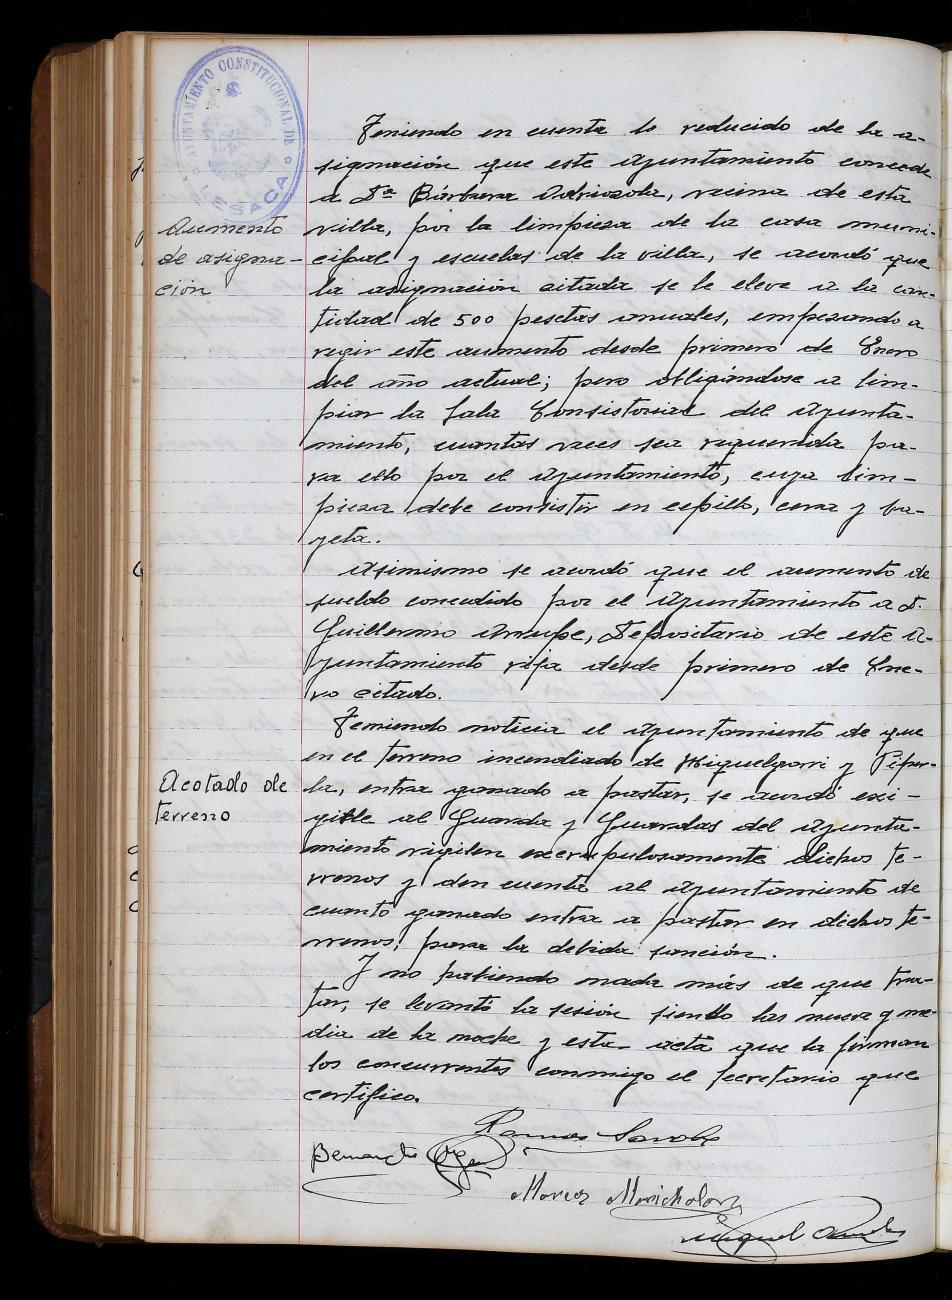 AYUNTAMIENTO CONSTITUCIONAL DE
LESACA
Aumento
de asigna-
ción
Teniendo en cuenta lo reducido de la a-
signación que este Ayuntamiento concede
a Dª Bárbara Odriozola, vecina de esta
villa, por la limpieza de la casa muni-
cipal y escuelas de la villa, se acordó que
la asignación citada se le eleve a la can-
tidad de 500 pesetas anuales, empezando a
regir este aumento desde primero de Enero
del año actual; pero obligándose a lim-
piar la Sala Consistorial del Ayunta-
miento, cuantas veces sea requerida pa-
ra ello por el Ayuntamiento, cuya lim-
pieza debe consistir en cepillo, cera y ba-
yeta.
Asimismo se acordó que el aumento de
sueldo concedido por el Ayuntamiento a D.
Guillermo Depositario de este A-
yuntamiento rija desde primero de Ene-
ro citado.
Acotado de
terreno
Teniendo noticia el Ayuntamiento de que
en el terreno incendiado de y
la, entra ganado a pastar, se acordó exi-
girle al Guarda y Guardas del Ayunta-
miento vigilen escrupulosamente dichos te-
rrenos y den cuenta al Ayuntamiento de
cuanto ganado entra a pastar en dichos te-
rrenos, para la debida sanción.
Y no habiendo nada más de que tra-
tar, se levantó la sesión siendo las nueve y me-
dia de la noche y esta acta que la firman
los concurrentes conmigo el Secretario que
certifico.
Bernardo
Marcos
Miguel